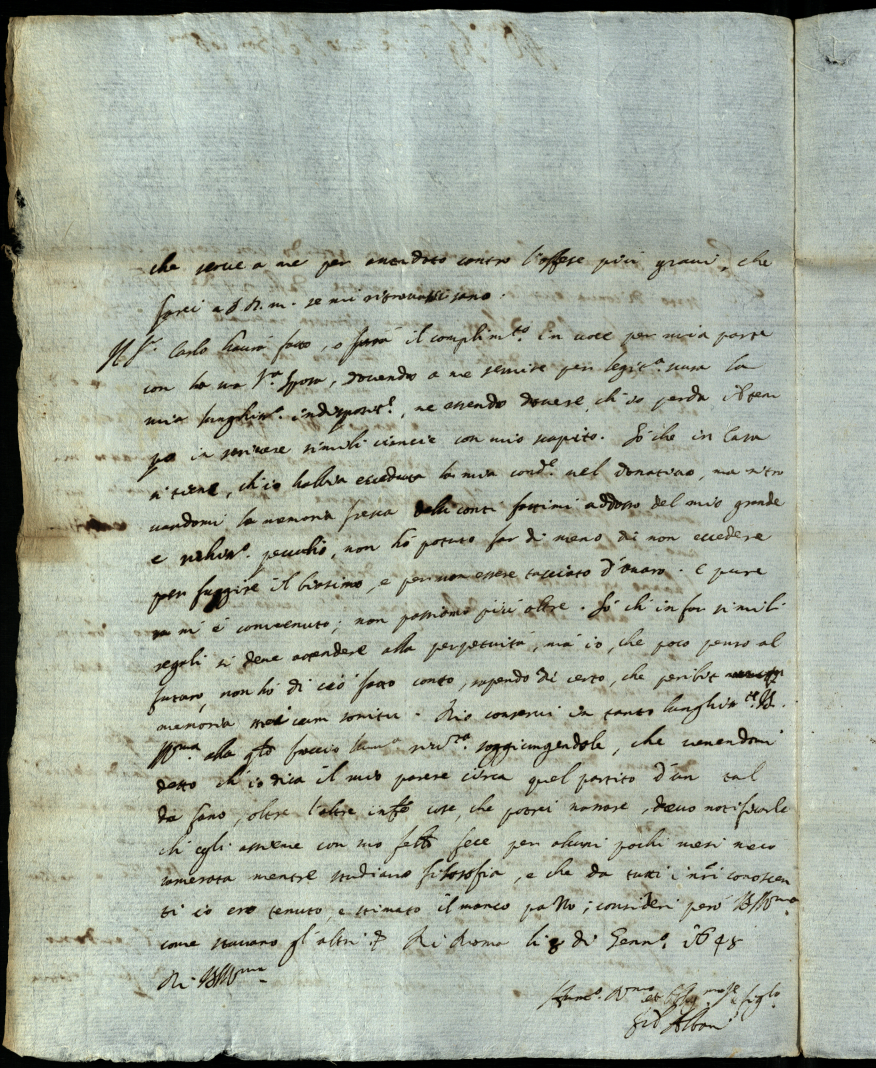 che serue a me per antidoto contro l'offese più graui, che
farei a se mi ritrouassi sano.
Carlo haurà fatto, o farà il complim.to in uoce per mia parte
con la sua Sposa, douendo a me seruire per legit.a scusa la
mia lunghiss.a indisposit.e, ne essendo douere, ch'io perda il tem
po in scriuere simili ciancie con mio scapito. Sò che in Casa
si tiene, ch'io habbia ecceduto la mia cond.e nel donatiuo, ma ritro
uandomi la memoria fresca delli conti fattimi addosso del mio grande
e peculio, non hò potuto far di meno di non eccedere
per fuggire il biasimo, e per non essere tacciato d'auaro. E pure
mi è conuenuto; non passiamo più oltre. Sò ch'in far simili
regali si deue attendere alla perpetuità, mà io, che poco penso al
futuro, non hò di ciò fatto conto, sapendo di certo, che peribit
memoria mei cum sonitu. Dio conserui in tanto lunghis.te
alla q.le faccio riu.za soggiungendole, che uenendomi
detto ch'io dica il mio parere circa quel partito d'un tal
da Fano, oltre l'altre cose, che potrei narrare, deuo notificarle
ch'egli assieme con suo fece per alcuni pochi mesi meco
camerata mentre studiauo filosofia, e che da tutti i n.ri conoscen
ti io ero tenuto, e stimato il manco pazzo; consideri però
come stauano gl'altri Di Roma li 8 di Genn.o 1648
Di
figlo
Albani